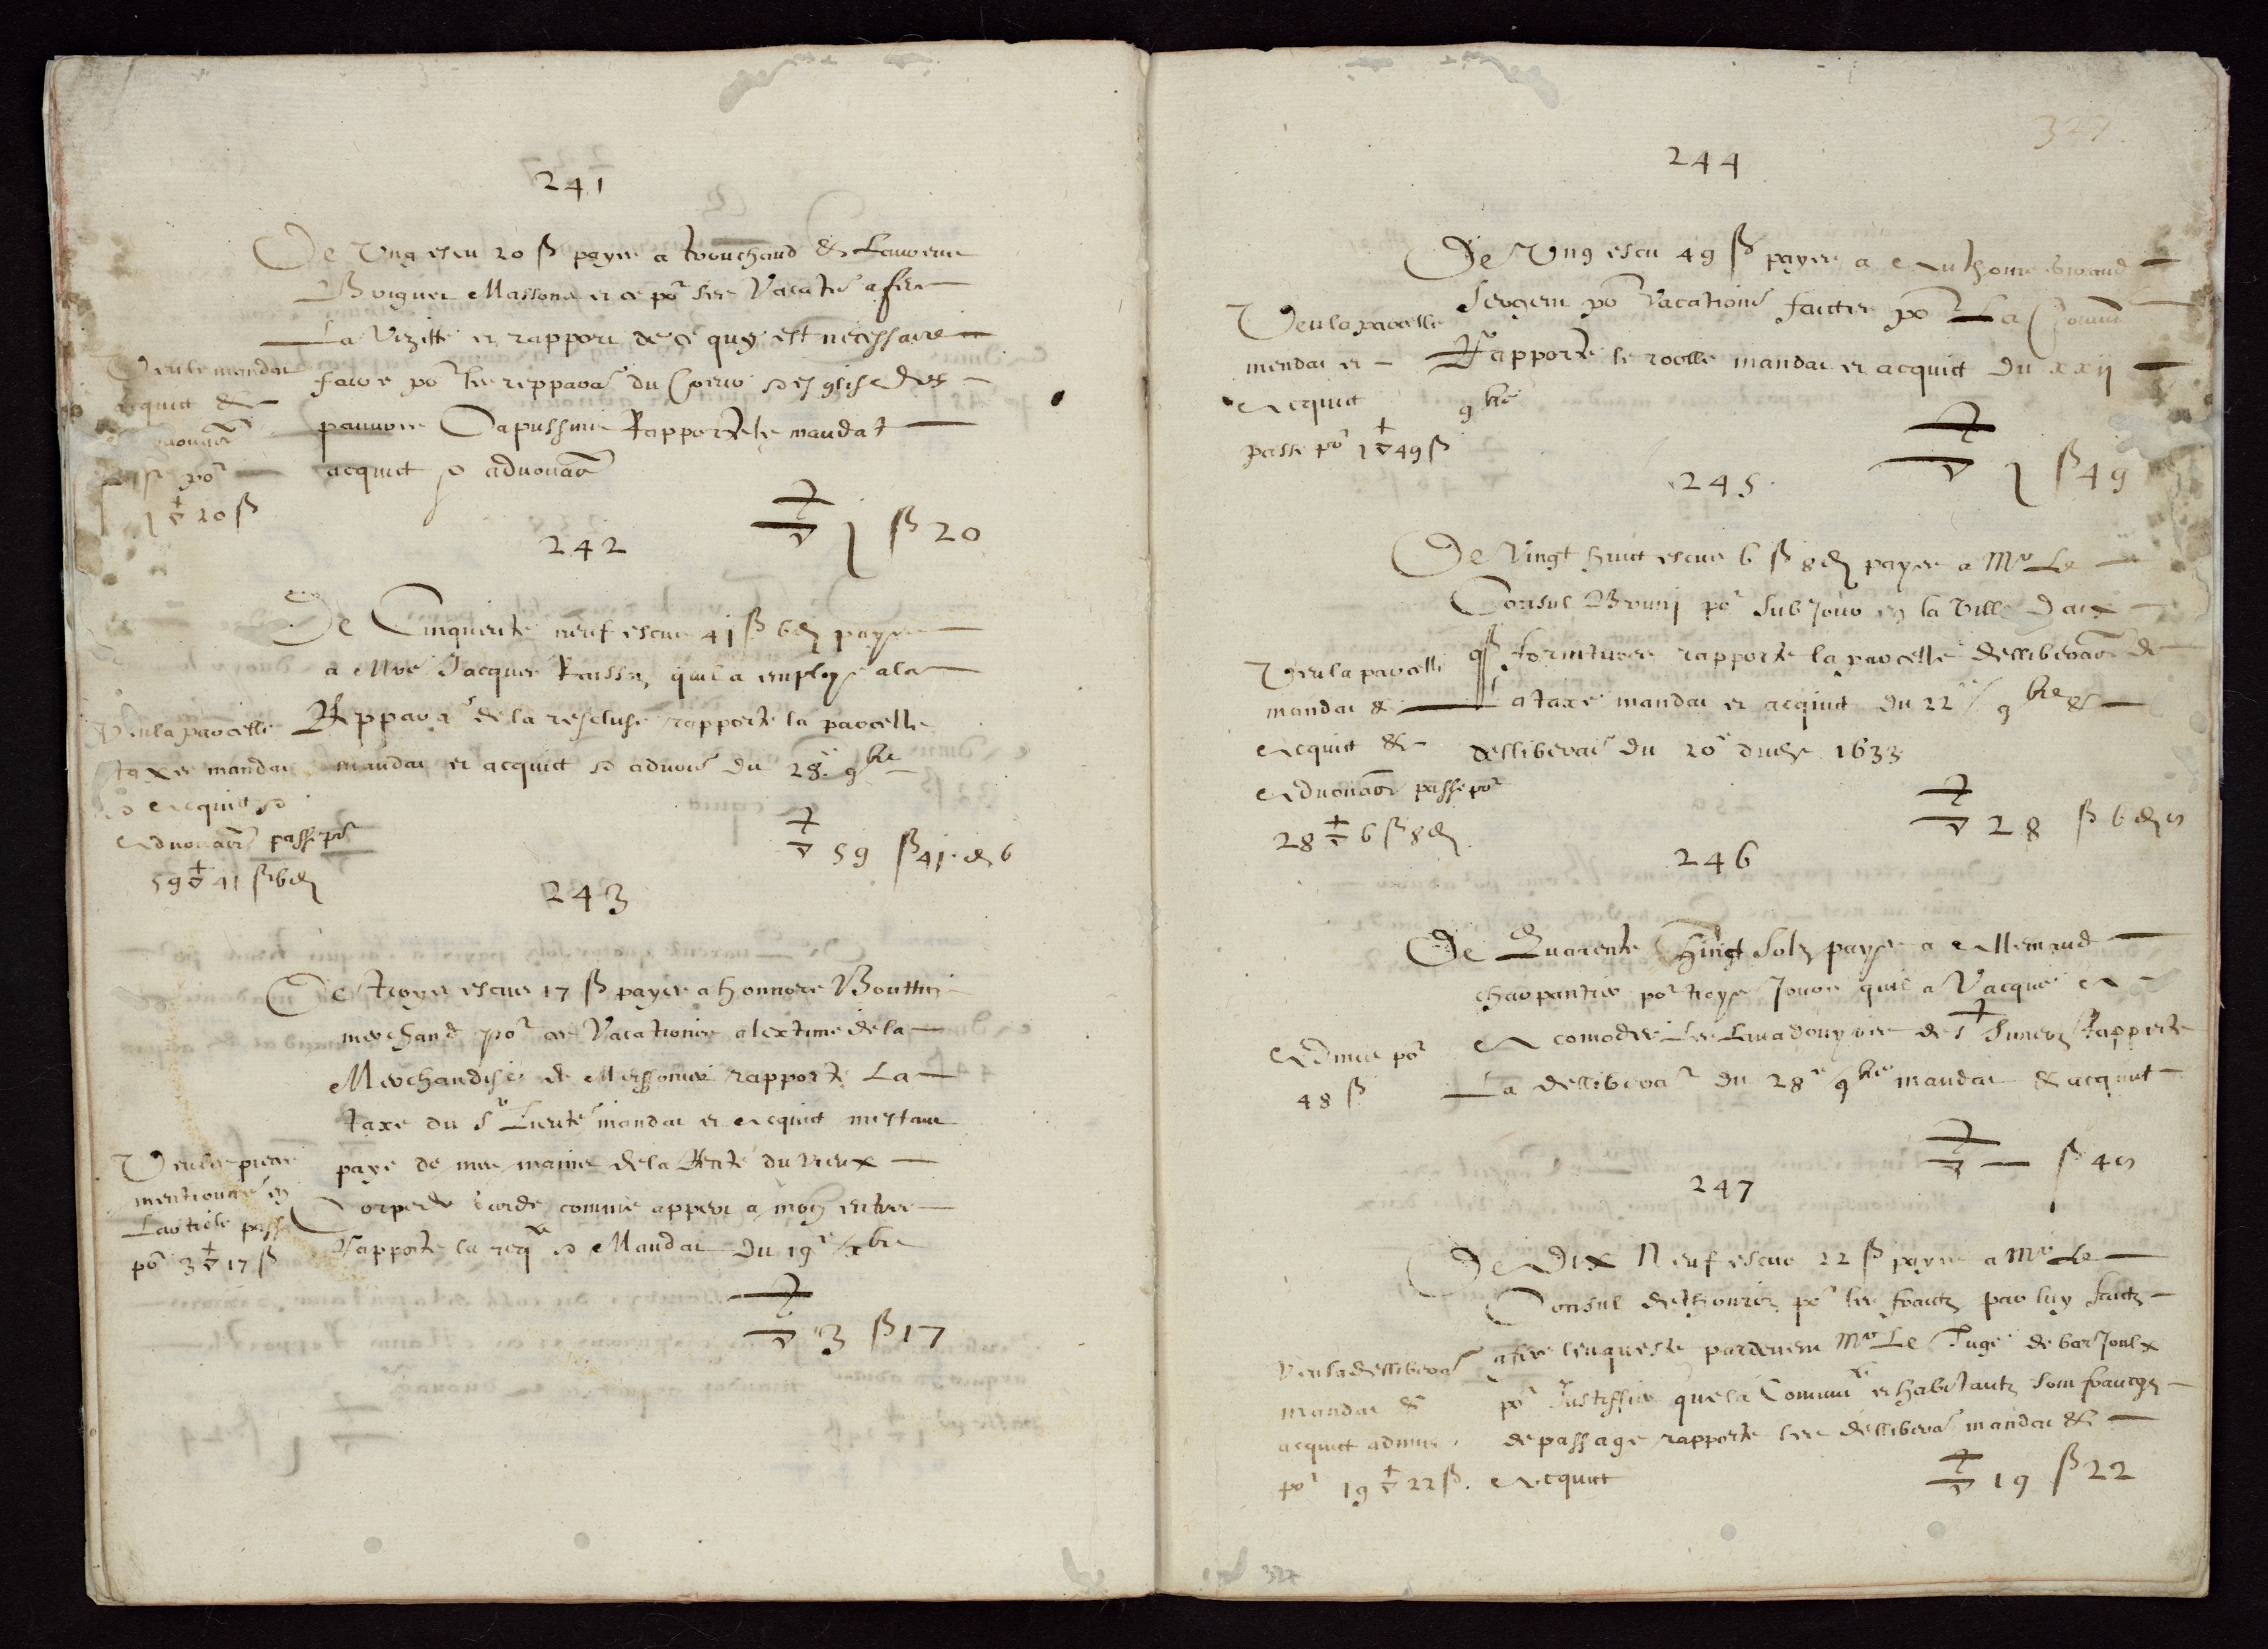 241
De Ung escu 20 ß payes a trouchand & Laurens
Masson et ce po^r ses Vacatio^s afere
La Vizitte et rapport de ce quy est necessaire
faire po^r les reppara^s du Coeur & esglise des
pauvres Capussins Rapporte le mandat
acquict & advoua^on
Veu le mandat
acquict &
advoua^on
passe po^r
1 20 ß
1 ß 20
242
De Cinquente neuf escus 41 ß 6 d payes
a M^re Jacques quil a employe a la
Reppara^s de la rescluse rapporte la parcelle
mandat et acquict & advoua^s du 28^e 9^bre
Veu la parcelle
taxes mandat
& Acquict &
Advoua^on passe po^r
59 41 ß 6 d
59 ß 41 d 6
243
De troyes escus 17 ß payes a honnore Bouttin
merchand po^r ses Vacations a lextime de la
Merchandise de rapporte La
taxe du S^r Lieute^t mandat et Acquict mestant
paye de mes mains de la Rente du vieux
Corps de Garde comme appert a mon entree
Rapporte la req^te & Mandat du 19^e x^bre
Veu les pieces
mentionnees en
Larticle passe
po^r 3 17 ß
3 ß 17
327
244
De Ung escu 49 ß payes a Anthoine
Sergent po^r Vacations faictes po^r La Comm^te
Rapporte le roolle mandat et acquict du xxij
9^bre
Veu la parcelle
mendat et
Acquict
passe po^r 1 49 ß
1 ß 49
245
De Vingt huict escus 6 ß 8 d payes a M^r Le
Consul Brunj po^r Subjour en la Ville daix
fornitures rapporte la parcelle delliberaon de
La taxe mandat et acquict du 22^e 9^bre &
delliberaon du 20^e dudt 1633
Veu la parcelle
mandat &
Acquict &
Advouaon passe po^r
28 6 ß 8 d
28 ß 6 d 8
246
De Quarente huict Solz payes a Allemand
charpantier po^r troys Jours quil a Vacque A
Acomoder Les de S^t Rapporte
La dellibera^on du 28^e 9^bre mandat & acquict
Admis po^r
48 ß
ß 48
247
De Dix Neuf escus 22 ß payes a M^r Le
Consul po^r les fraictz par luy faictz
afere lenqueste pardevent M^r Le Juge de barjoulx
po^r Justiffier que la Commu^te et habitantz sont francqz
de passage rapporte les dellibera^on mandat &
Acquict
Veu la dellibera^on
mandat &
acquict admis
po^r 19 22 ß.
19 ß 22
327